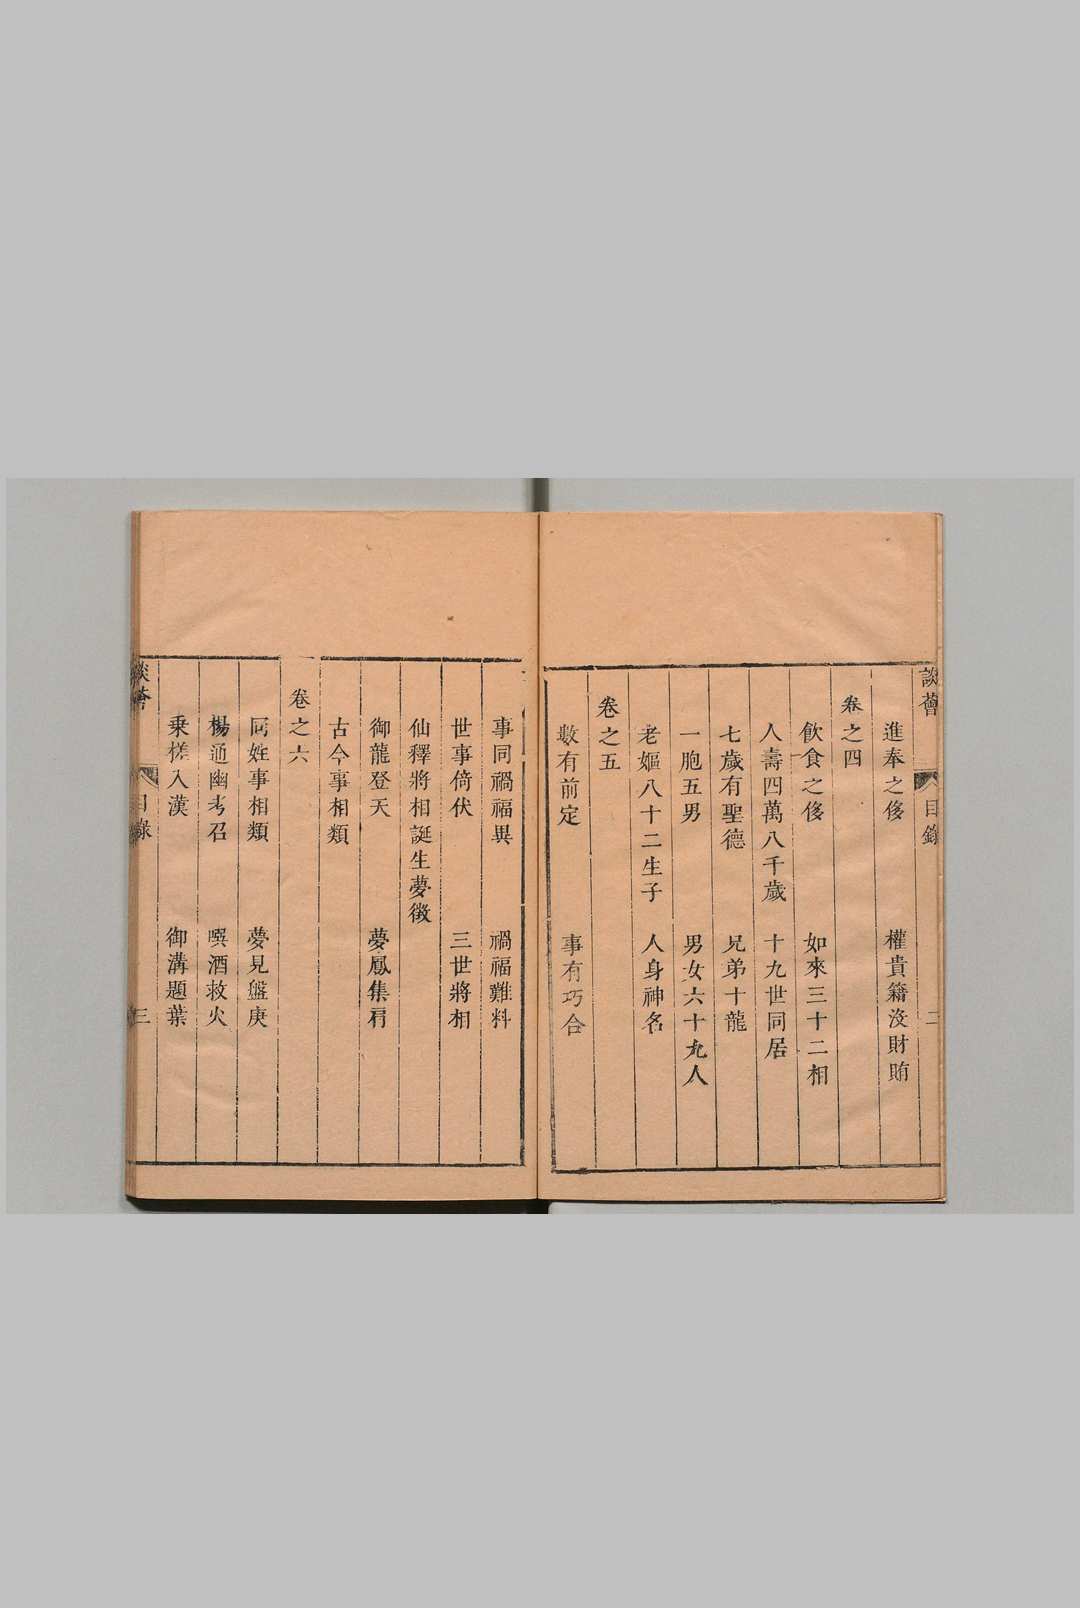 談薈 目錄 二
進奉之侈 權貴籍沒財賄
卷之四
飲食之侈 如來三十二相
人壽四萬八千歲 十九世同居
七歲有聖德 兄弟十龍
一胞五男 男女六十九人
老嫗八十二生子 人身神名
卷之五
數有前定 事有巧合
事同禍福異 禍福難料
世事倚伏 三世將相
仙釋將相誕生夢徵
御龍登天 夢鳳集肩
古今事相類
卷之六
同姓事相類 夢見盤庚
楊通幽考召 噀酒救火
乗槎入漢 御溝題葉
談薈 目錄 三